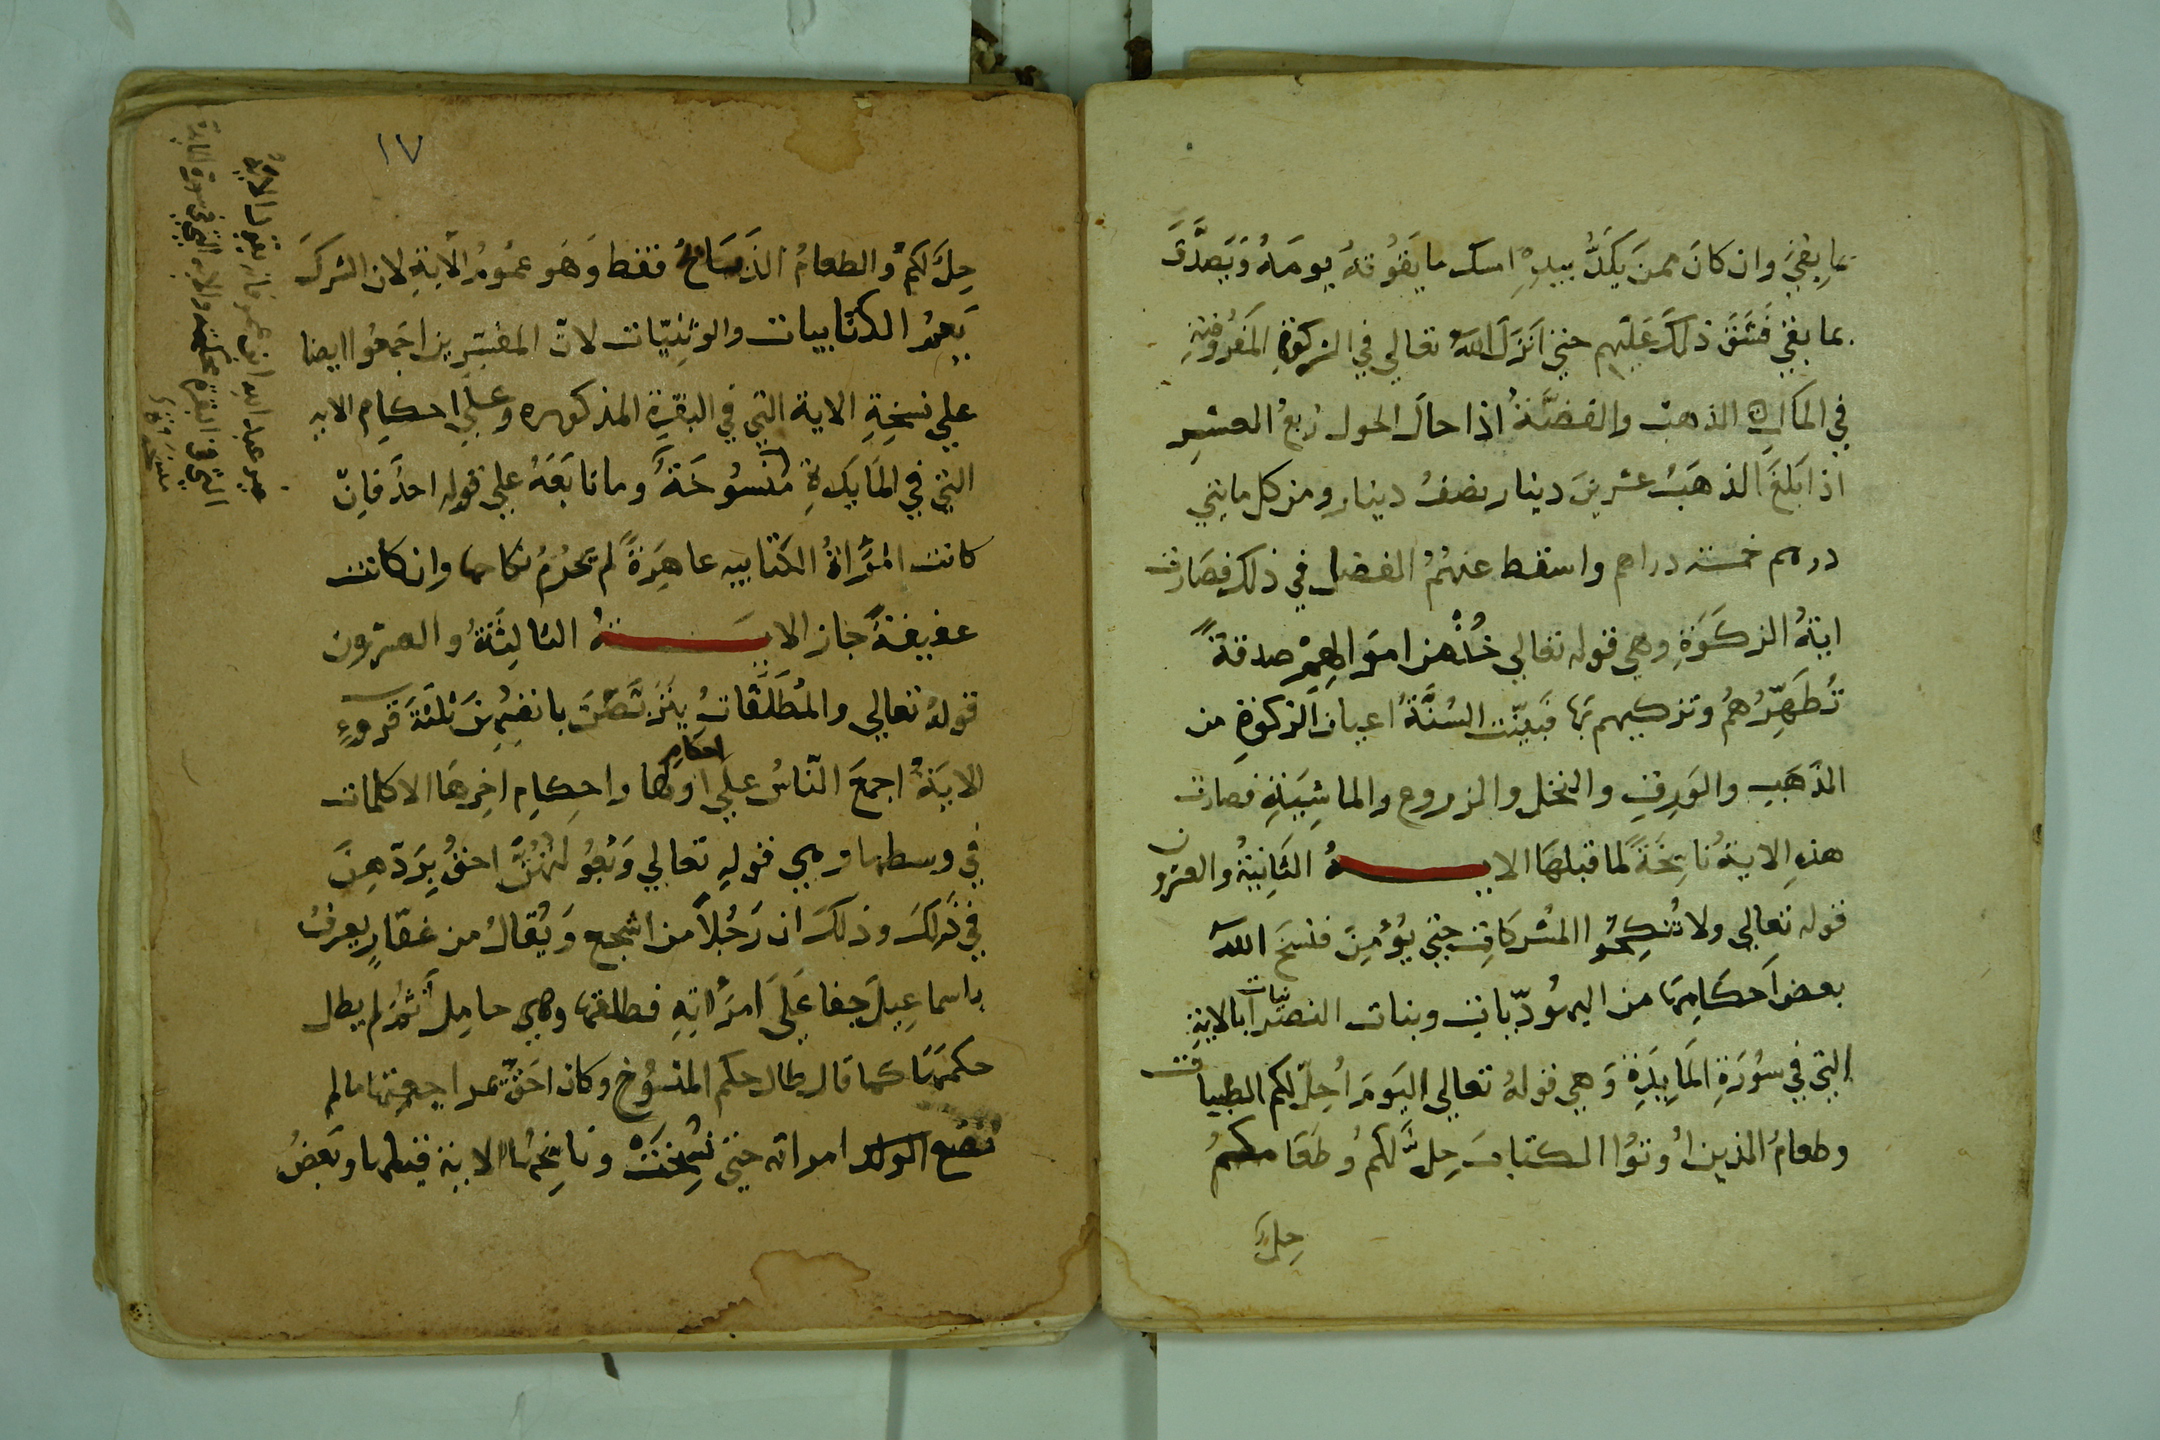 بما بقي وان كان ممن يكدّ بيده امسك ما يقوته يومه وتصدّق
بما بقي فشق ذلك عليهم حتي انزل الله تعالي في الزكوة المفروضة
في المال الذهب والفضة اذا حال الحول ربع العشر
اذا بلغ الذهب عشرين دينار نصف دينار ومن كل مايتي
درهم خمسة دراهم واسقط عنهم الفضل في ذلك فصارت
اية الزكوة وهي قوله تعالي خذ من اموالهم صدقة
تطهرهم وتزكيهم بها فبينت السنة اعيان الزكوة من
الذهب والورق والنخل والزروع والماشية فصارت
هذه الاية ناسخة لما قبلها الاية الثانية والعشرون
قوله تعالي ولا تنكحوا المشركات حتي يؤمن فنسخ الله
بعض احكامها من اليهوديات وبنات النصرانيات بالاية
التي في سورة المايدة وهي قوله تعالي اليوم احل لكم الطيبات
وطعام الذين اوتوا الكتاب حل لكم وطعامكم
حل
١٧
حل لكم والطعام الذبايح فقط وهو عموم الاية لان الشرك
يعم الكتابيات والوثنيات لان المفسرين اجمعوا ايضا
علي نسخة الاية التي في البقرة المذكوره وعلي احكام الايه
التي في المايدة منسوخة وما تابعه علي قوله احد فان
كانت المراة الكتابيه عاهرة لم يحرم نكاحها وان كانت
عفيفة جاز الاية الثالثة والعشرون
قوله تعالي والمطلقات يتربصن بانفسهن ثلثة قروء
الاية اجمع الناس علي احكام اولها واحكام اخرها الا كلمات
في وسطها وهي قوله تعالي وبعولتهن احق بردهن
في ذلك وذلك ان رجلا من اشجع ويقال من غفار يعرف
باسماعيل جفا علي امراته فطلقها وهي حامل ثم لم يطل
حكمها كما قال طال حكم المنسوخ وكان احق بمراجعتها مالم
تضع الولد امراته حتي نسخت وناسخها الاية قبلها وبعض